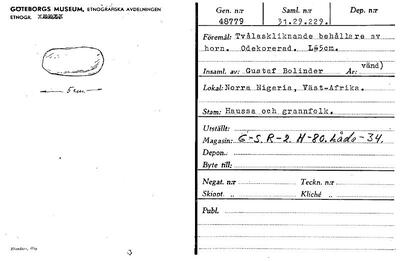 GÖTEBORGS MUSEUM, ETNOGRAFISKA AVDELNINGEN
ETNOGR.
5 cm
Gen. n:r
48779
Saml. n:r
31.29.229.
Dep. n:r
Föremål: Tvålaskliknande behållare av
horn. Odekorerad. L=5cm.
vänd)
Insaml. av: Gustaf Bolinder År:
Lokal: Norra Nigeria, Väst-Afrika.
Stam: Haussa och grannfolk.
Utställt:
Magasin: E-S. R-2. H-80. Låda-34.
Depon.
Byte till:
Negat. n:r
Teckn. n:r
Skiopt. »
Kliché »
Publ.